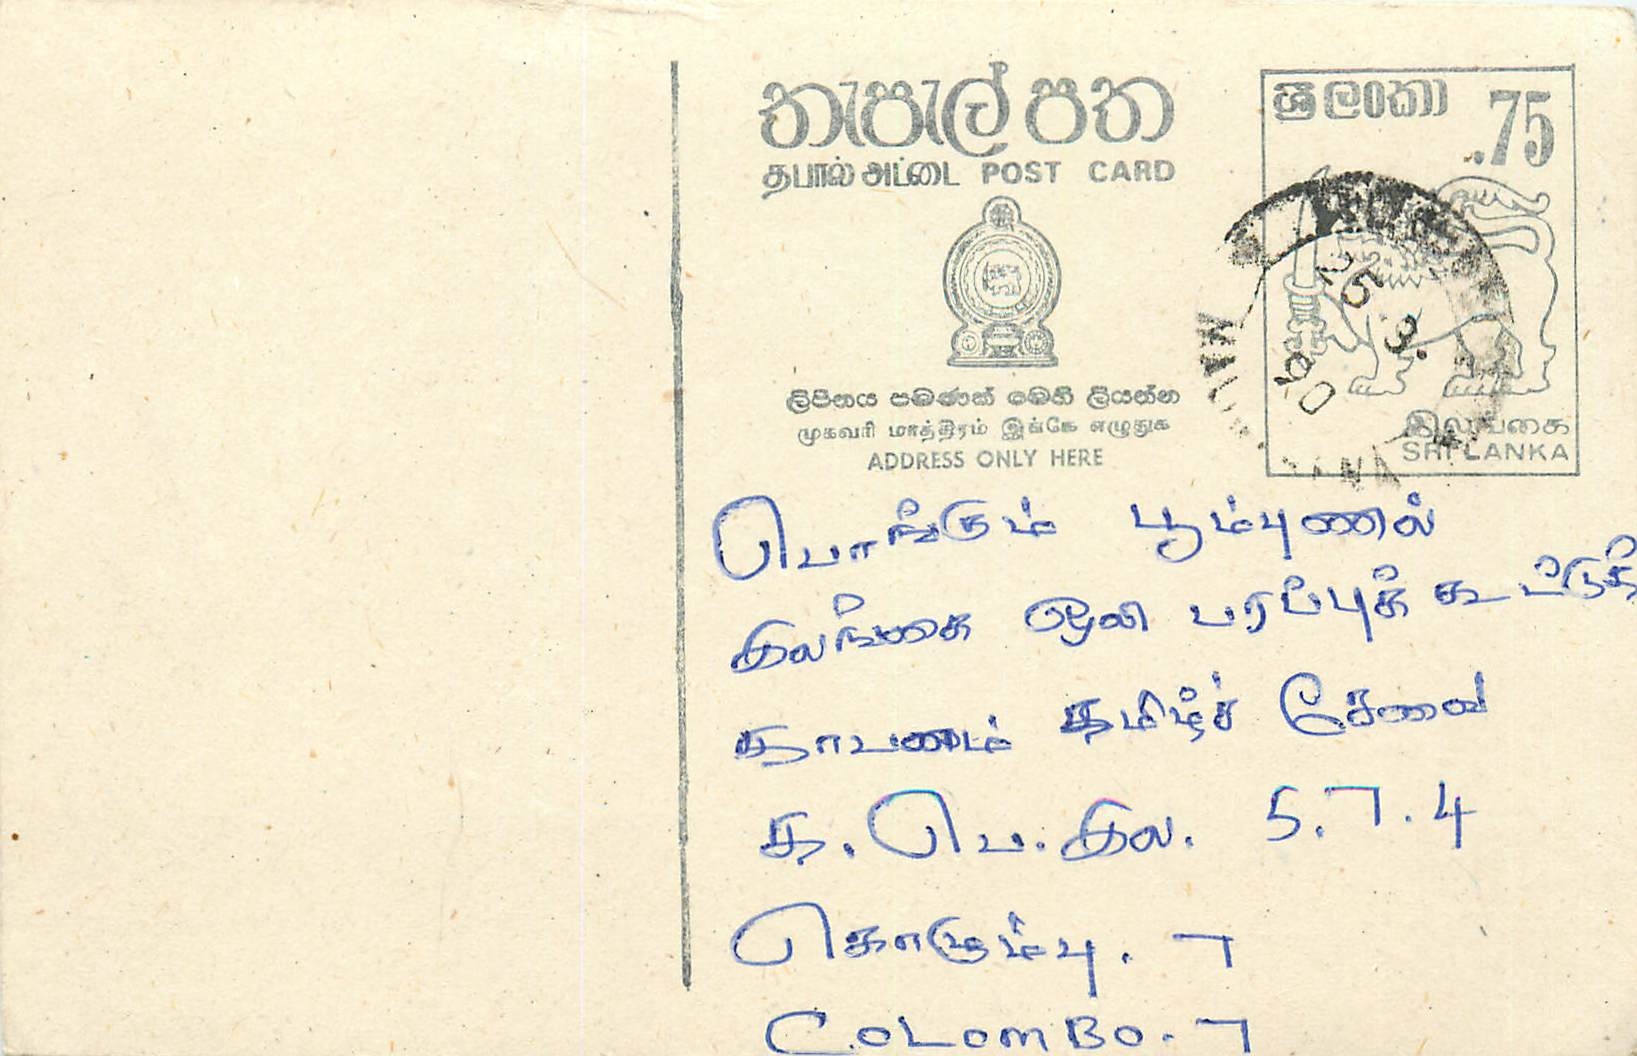 තැපැල් පත
தபால் அட்டை POST CARD
ශ්‍රී ලංකා .75
25.9.
90
ලිපිනය පමණක් මෙහි ලියන්න
முகவரி மாத்திரம் இங்கே எழுதுக
ADDRESS ONLY HERE
இலங்கை
SRI LANKA
பொங்கும் பூம்புணல்
இலங்கை ஒலி பரப்புக் கூட்டுத்
தாபனம் தமிழ்ச் சேவை
த.பெ.இல. 5.7.4
கொழும்பு. 7
COLOMBO. 7